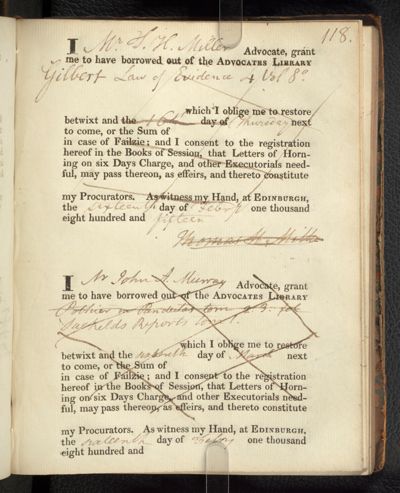 118.
I Mr. T. H. Miller Advocate, grant
me to have borrowed out of the ADVOCATES LIBRARY
Gilbert Law of Evidence 4 Vol 8o
which I oblige me to restore
betwixt and the day of next
to come, or the Sum of
in case of Failzie; and I consent to the registration
hereof in the Books of Session, that Letters of Horn-
ing on six Days Charge, and other Executorials need-
ful, may pass thereon, as effeirs, and thereto constitute
my Procurators. As witness my Hand, at EDINBURGH,
the sixteenth day of Feby one thousand
eight hundred and fifteen
Thomas H. Miller
I Mr John A. Murray Advocate, grant
me to have borrowed out of the ADVOCATES LIBRARY
Pothier in Pandectas tom 2. 3. fol
Reports
which I oblige me to restore
betwixt and the day of March next
to come, or the Sum of
in case of Failzie; and I consent to the registration
hereof in the Books of Session, that Letters of Horn-
ing on six Days Charge, and other Executorials need-
ful, may pass thereon, as effeirs, and thereto constitute
my Procurators. As witness my Hand, at EDINBURGH,
the sixteenth day of Feby one thousand
eight hundred and